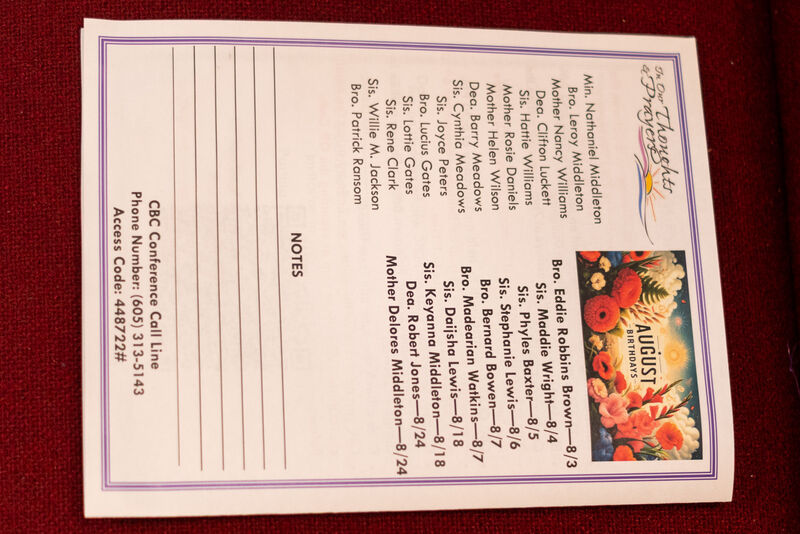 In Our
Thoughts
& Prayers
Min. Nathaniel Middleton
Bro. Leroy Middleton
Mother Nancy Williams
Dea. Clifton Luckett
Sis. Hattie Williams
Mother Rosie Daniels
Mother Helen Wilson
Dea. Barry Meadows
Sis. Cynthia Meadows
Sis. Joyce Peters
Bro. Lucius Gates
Sis. Lottie Gates
Sis. Rene Clark
Sis. Willie M. Jackson
Bro. Patrick Ransom
AUGUST
BIRTHDAYS
Bro. Eddie Robbins Brown—8/3
Sis. Maddie Wright—8/4
Sis. Phyles Baxter—8/5
Sis. Stephanie Lewis—8/6
Bro. Bernard Bowen—8/7
Bro. Madearian Watkins—8/7
Sis. Daijsha Lewis—8/18
Sis. Keyanna Middleton—8/18
Dea. Robert Jones—8/24
Mother Delores Middleton—8/24
NOTES
CBC Conference Call Line
Phone Number: (605) 313-5143
Access Code: 448722#